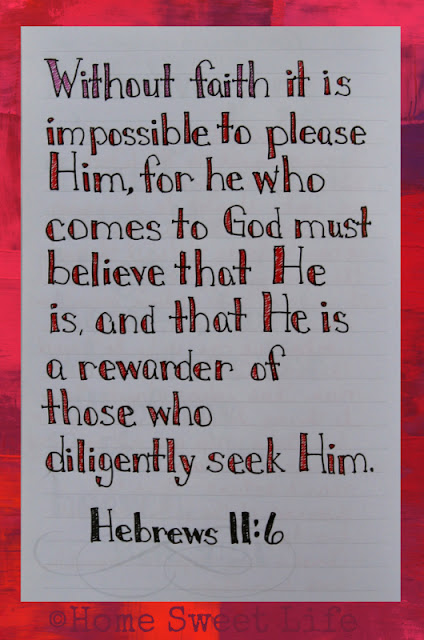 Without faith it is
impossible to please
Him, for he who
comes to God must
believe that He
is, and that He is
a rewarder of
those who
diligently seek Him.
Hebrews 11:6
©Home Sweet Life